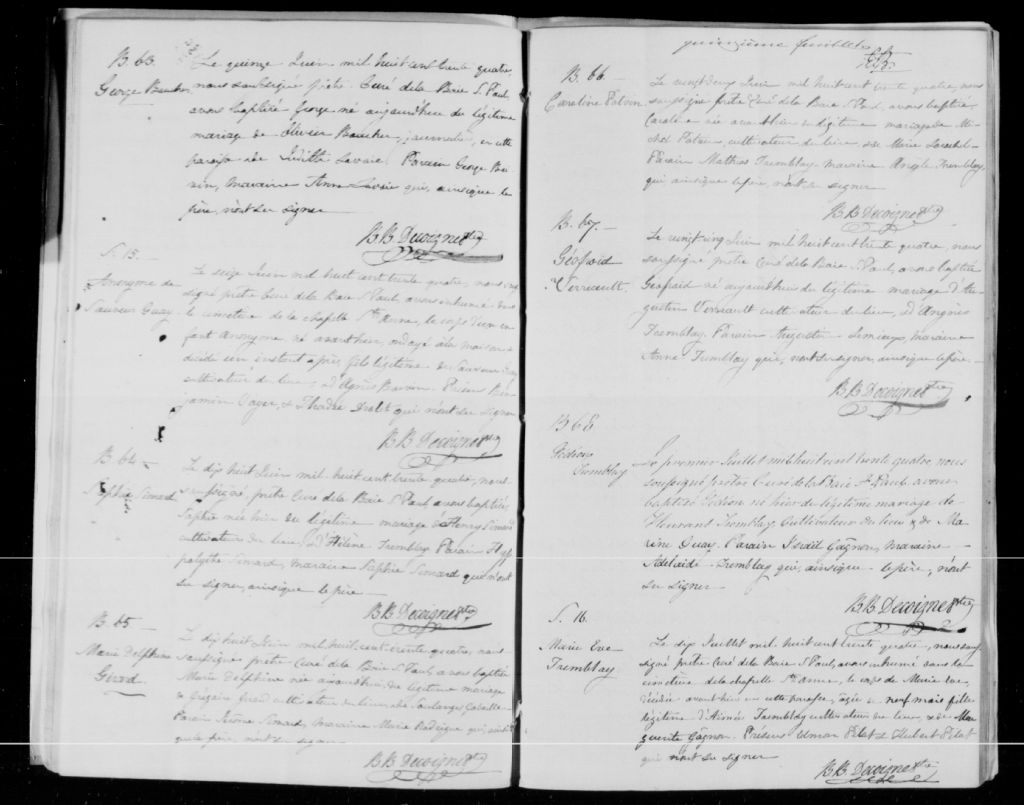 B. 63.
George Boucher
Le quinze Juin mil huit cent trente quatre,
nous soussigné prêtre Curé de la Baie St Paul
avons baptisé George né aujourd'hui du légitime
mariage de Olivier Boucher, journalier, en cette
paroisse & de Judith Lavoie. Parain George
Marraine Anne Lavoie qui, ainsi que le
père, n'ont su signer
B.B. Decoigne Ptre
S. 15.
Anonyme de
Sauveur Guay
Le seize Juin mil huit cent trente quatre, nous sous
signé prêtre Curé de la Baie St Paul, avons inhumé dans
le cimetière de la chapelle Ste Anne, le corps d'un en
fant Anonyme né avant hier, ondoyé à la maison
décédé un instant après fils légitime de Sauveur Guay
cultivateur de lieu, & d'Agnès. Présens Ben
jamin & qui n'ont su signer
B.B. Decoigne Ptre
B. 64
Sophie Simard
Le dix huit Juin mil huit cent trente quatre, nous
soussigné, prêtre Curé de la Baie St Paul, avons baptisé
Sophie née hier du légitime mariage d'Henry Simard
cultivateur de lieu, & d'Hélène Tremblay. Parain Hyp
polythe Simard, maraine Sophie Simard qui n'ont
su signer, ainsi que le père
B.B. Decoigne Ptre
B. 65
Marie Delphine
Girard
Le dix huit Juin mil huit cent trente quatre, nous
soussigné prêtre Curé de la Baie St Paul, avons baptisé
Marie Delphine née aujourd'hui, du légitime mariage
de Grégoire Girard cultivateur de lieu & de Soulanges
Parain Jérôme Simard, maraine Marie qui, ainsi
que le père, n'ont su signer
B.B. Decoigne Ptre
quinzième feuillet
B. 66.
Caroline Potvin
Le vingt deux Juin mil huit cent trente quatre, nous
soussigné prêtre Curé de la Baie St Paul, avons baptisé
Caroline née avant hier du légitime mariage de Mi
chel Potvin, cultivateur de lieu, & de Marie
Parain Mathas Tremblay maraine Angèle Tremblay,
qui ainsi que le père, n'ont su signer
B.B. Decoigne Ptre
B. 67.
Géofroid
Verreault.
Le vingt cinq Juin mil huit cent trente quatre, nous
soussigné prêtre Curé de la Baie St Paul, avons baptisé
Géofroid né aujourd'hui du légitime mariage d'Au
gustin Verreault cultivateur de lieu, & d'Angèle
Tremblay. Parain Augustin maraine
Anne Tremblay qui, n'ont su signer, ainsi que le père.
B.B. Decoigne Ptre
B 68
Gédion
Tremblay
Le premier Juillet mil huit cent trente quatre, nous
soussigné prêtre Curé de la Baie St Paul avons
baptisé Gédion né hier de légitime mariage de
Fleurant Tremblay Cultivateur du lieu & de Ma
rine Guay. Parain Israël Gagnon, maraine
Adélaïde Tremblay qui, ainsi que le père, n'ont
su signer
B.B. Decoigne Ptre
S. 16.
Marie Eve
Tremblay
Le dix Juillet mil huit cent trente quatre, nous sous
signé prêtre Curé de la Baie St Paul, avons inhumé dans le
cimetière de la chapelle Ste Anne, le corps de Marie Eve
décédée avant hier en cette paroisse, âgée de neuf mois fille
légitime d'Aimée Tremblay cultivateur de lieu, & de Ma
guerite Gagnon. Présens & Hubert
qui n'ont su signer
B.B. Decoigne Ptre